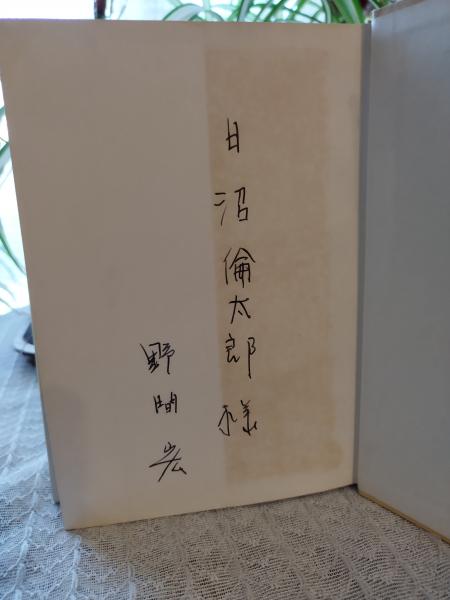 日沼倫太郎様
野間宏